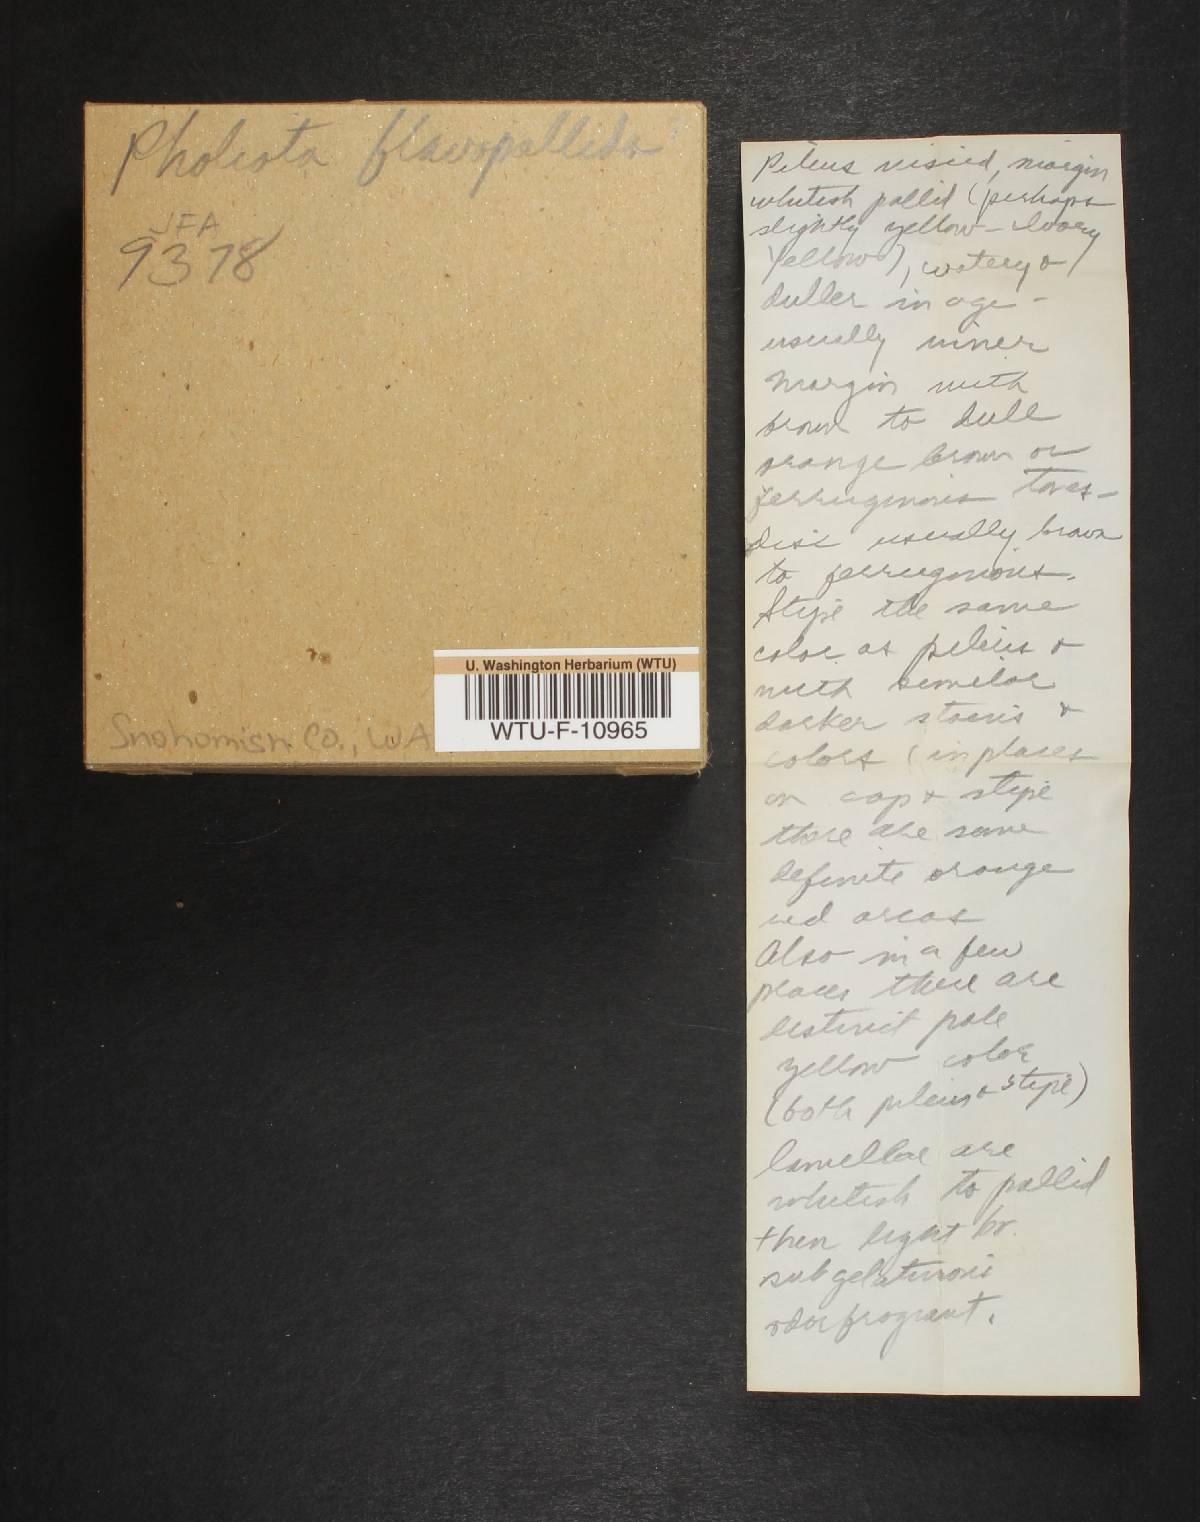 Pholiota flavopallida
JFA
9378
U. Washington Herbarium (WTU)
WTU-F-10965
Snohomish Co., WA
Pileus viscid, margin
whitish pallid (perhaps
slightly yellow - Ivory
Yellow), watery &
duller in age -
usually inner
margin with
brown to dull
orange brown or
ferruginous tones -
disc usually brown
to ferruginous.
Stipe the same
color as pileus &
with similar
darker stains &
colors (in places
on cap & stipe
there are some
definite orange
red areas
Also in a few
places there are
distinct pale
yellow color
(both pileus & stipe)
lamellae are
whitish to pallid
then light br.
subgelatinous
odor fragrant.